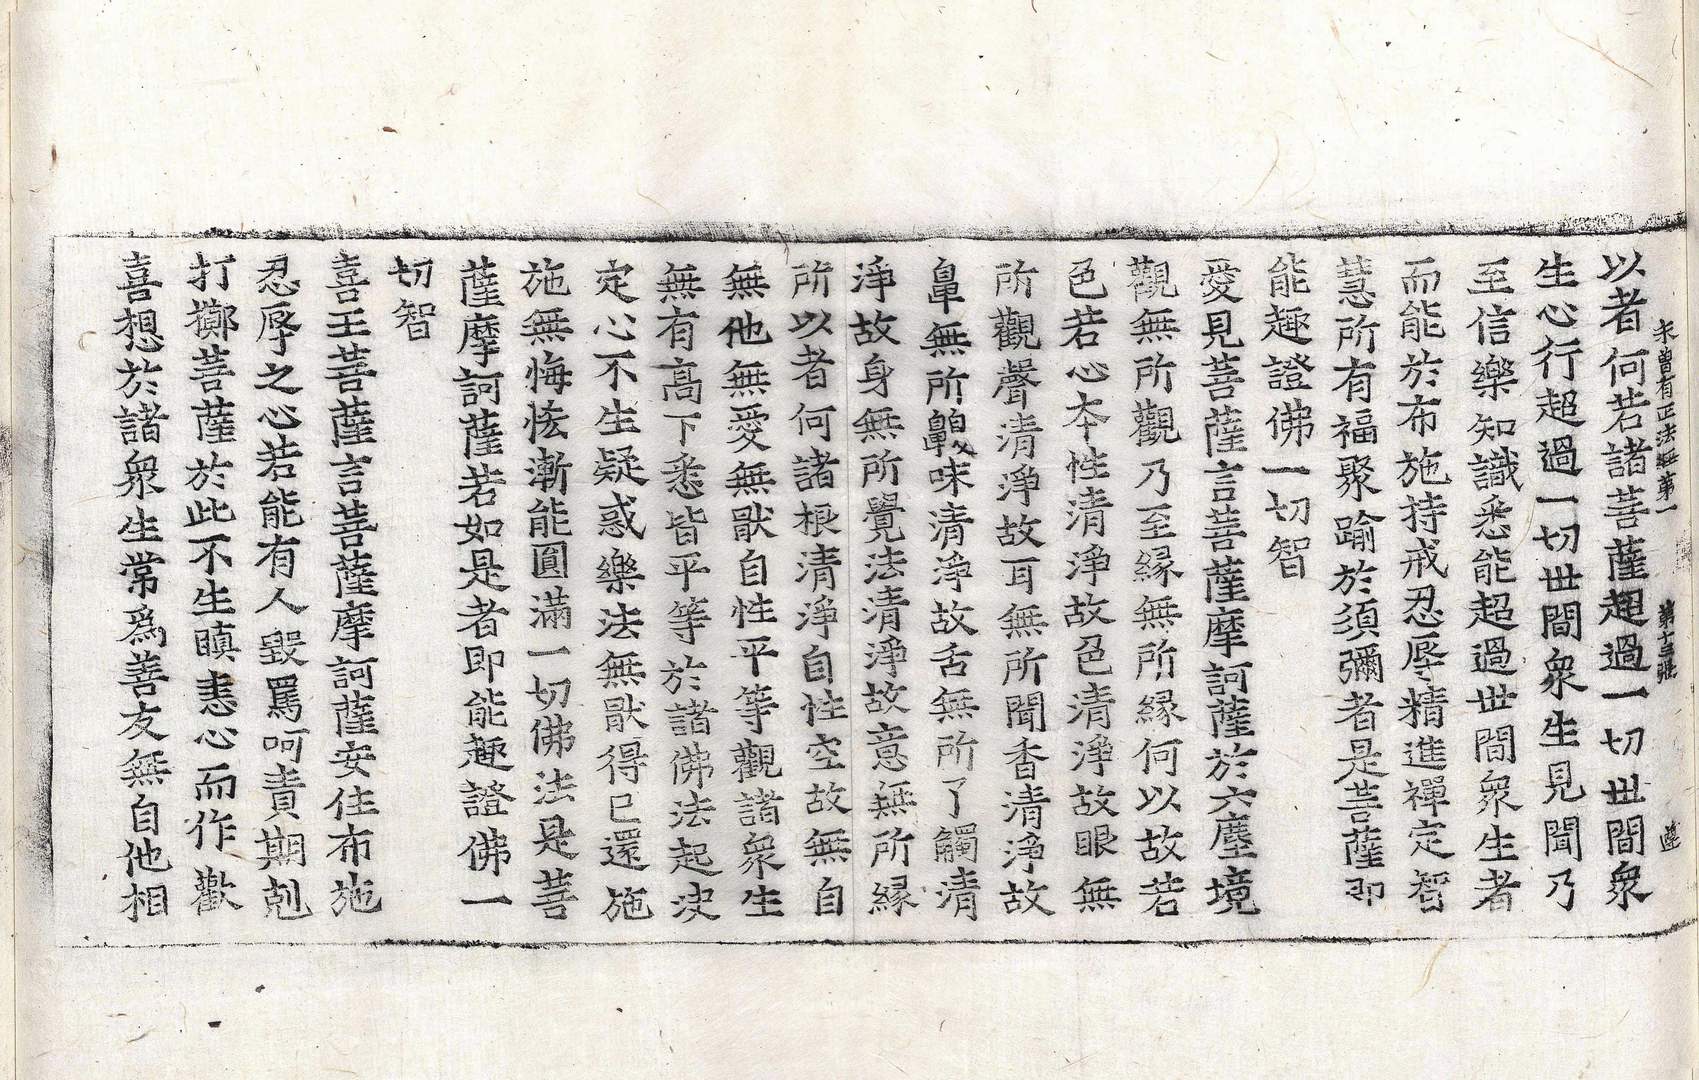 未曾有正法經第一 第十三張 薩
以者何若諸菩薩超過一切世間衆
生心行超過一切世間衆生見聞乃
至信樂知識悉能超過世間衆生者
而能於布施持戒忍辱精進禪定智
慧所有福聚踰於須彌者是菩薩即
能趣證佛一切智
愛見菩薩言菩薩摩訶薩於六塵境
觀無所觀乃至緣無所緣何以故若
色若心本性清淨故色清淨故眼無
所觀聲清淨故耳無所聞香清淨故
鼻無所齅味清淨故舌無所了觸清
淨故身無所覺法清淨故意無所緣
所以者何諸根清淨自性空故無自
無他無愛無猒自性平等觀諸衆生
無有高下悉皆平等於諸佛法起決
定心不生疑惑樂法無猒得已還施
施無悔悋漸能圓滿一切佛法是菩
薩摩訶薩若如是者即能趣證佛一
切智
喜王菩薩言菩薩摩訶薩安住布施
忍辱之心若能有人毀罵呵責期剋
打擲菩薩於此不生瞋恚心而作歡
喜想於諸衆生常爲善友無自他相